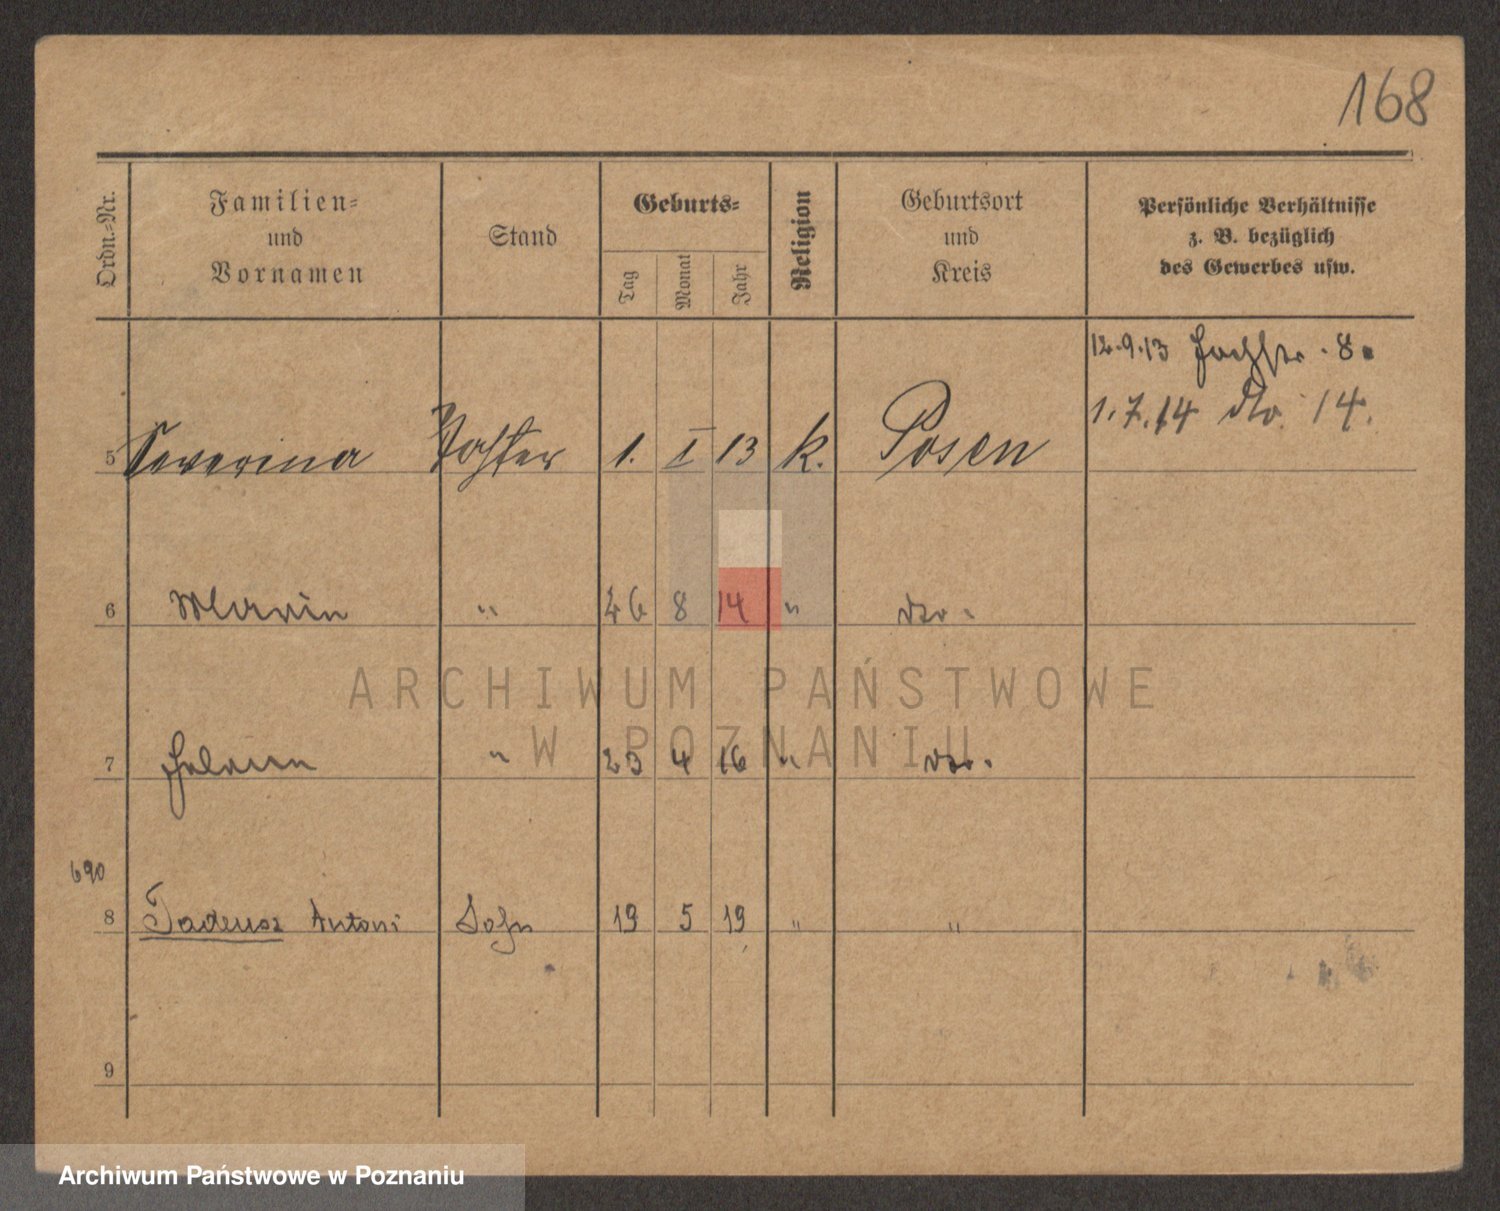 168
Ordn.-Nr.
Familien-
und
Vornamen
Stand
Geburts-
Tag
Monat
Jahr
Religion
Geburtsort
und
Kreis
Persönliche Verhältnisse
z. B. bezüglich
des Gewerbes usw.
12.9.13 8.
1.7.14 do. 14.
5 Severina Tochter 1. I 13 k. Posen
6 Maria " 26 8 14 " do.
7 " 23 4 16 " do.
690
8 Tadeusz Antoni Sohn 19 5 19 " "
9
ARCHIWUM PAŃSTWOWE
W POZNANIU
Archiwum Państwowe w Poznaniu